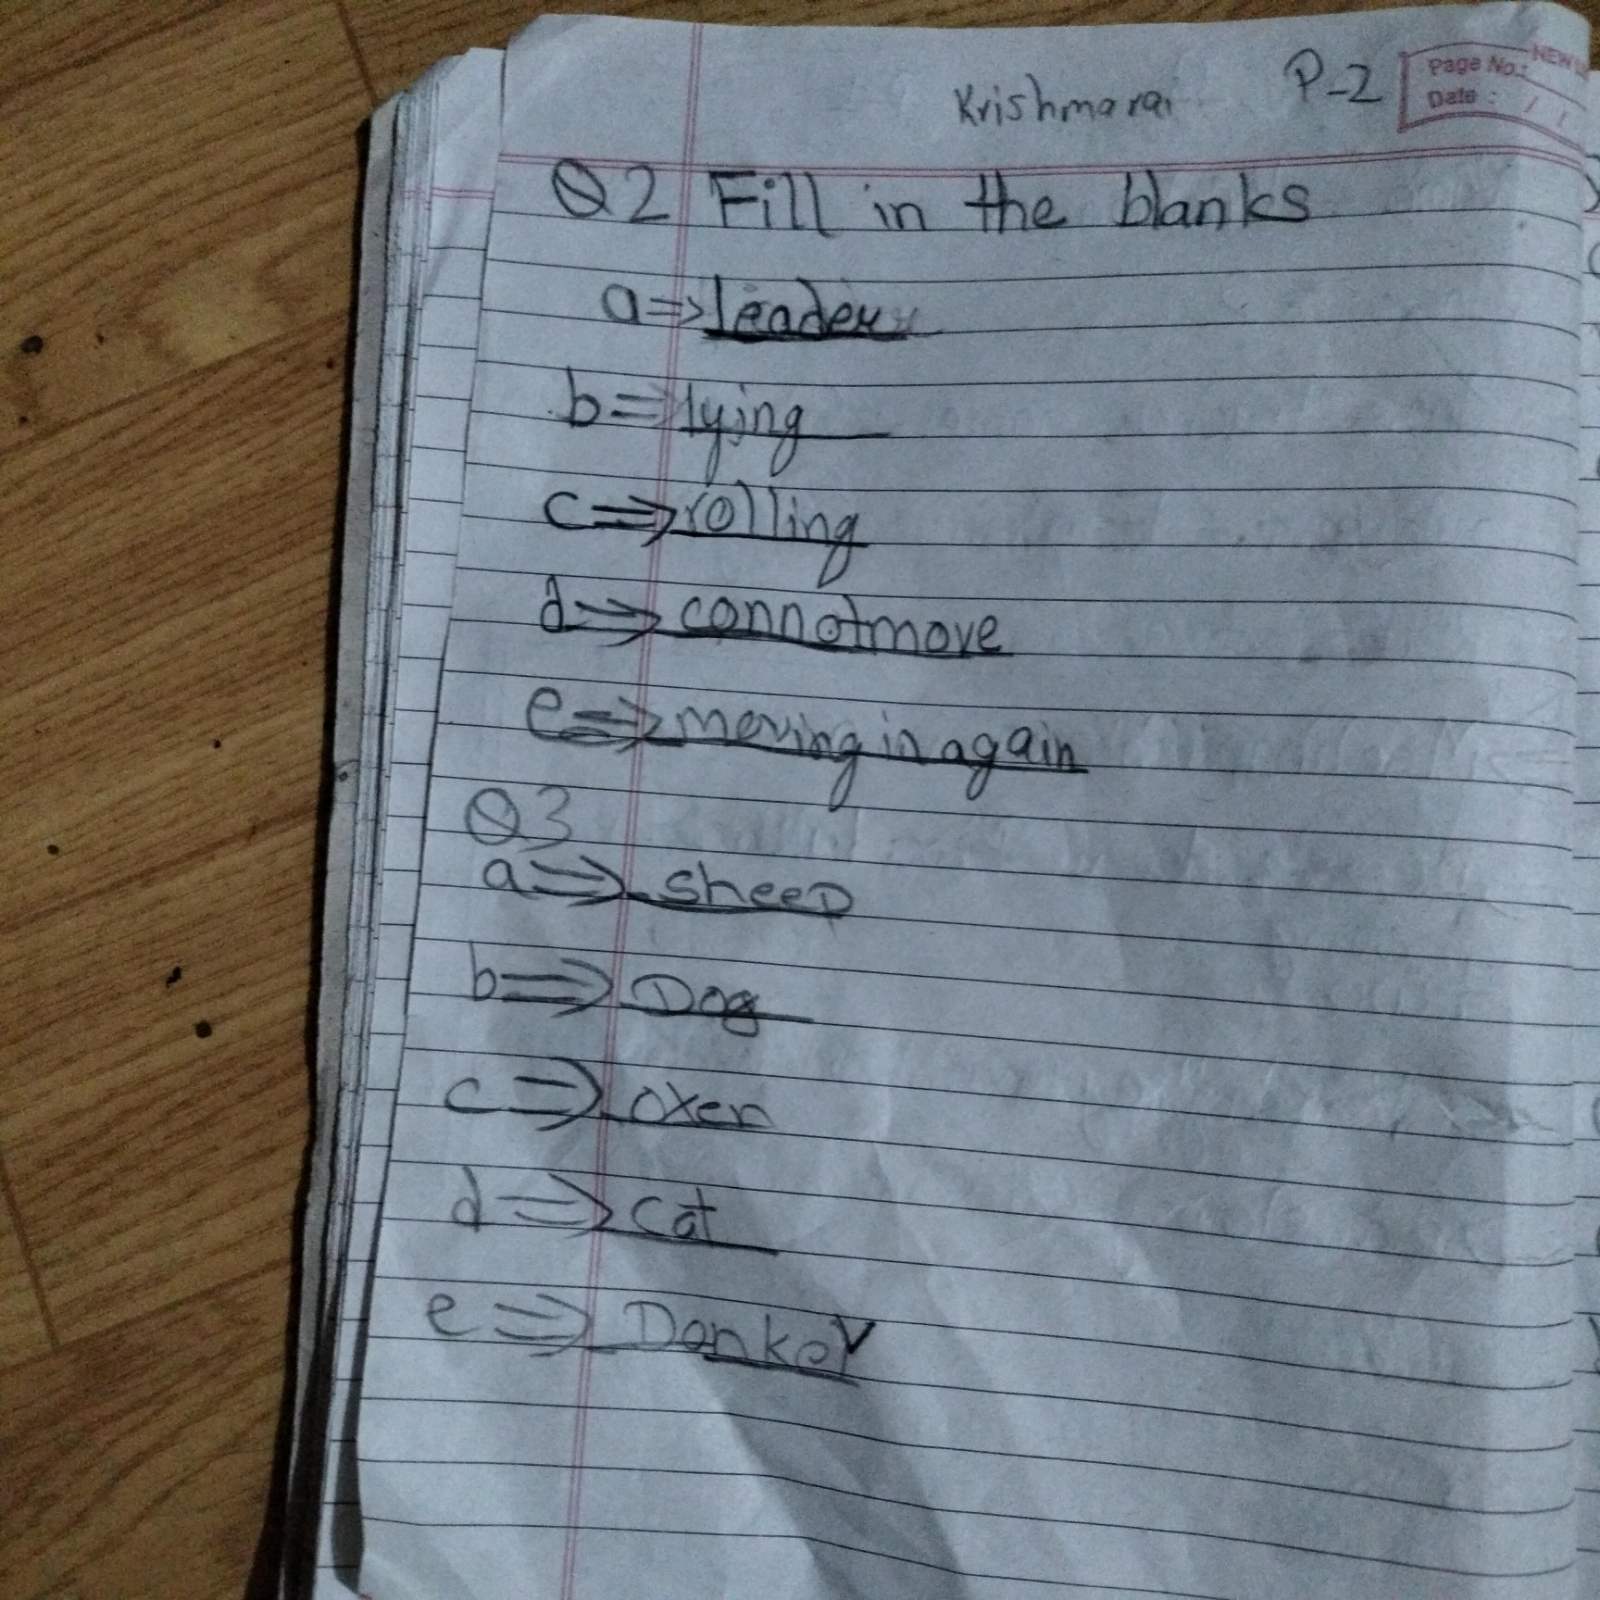 Krishmarai P-2
NEW
Page No.:
Date : / /
Q2 Fill in the blanks
a=>leader
b=>lying
c=>rolling
d=>connotmove
e=>moving in again
Q3
a=>sheep
b=>Dog
c=>oxen
d=>cat
e=>Donkey